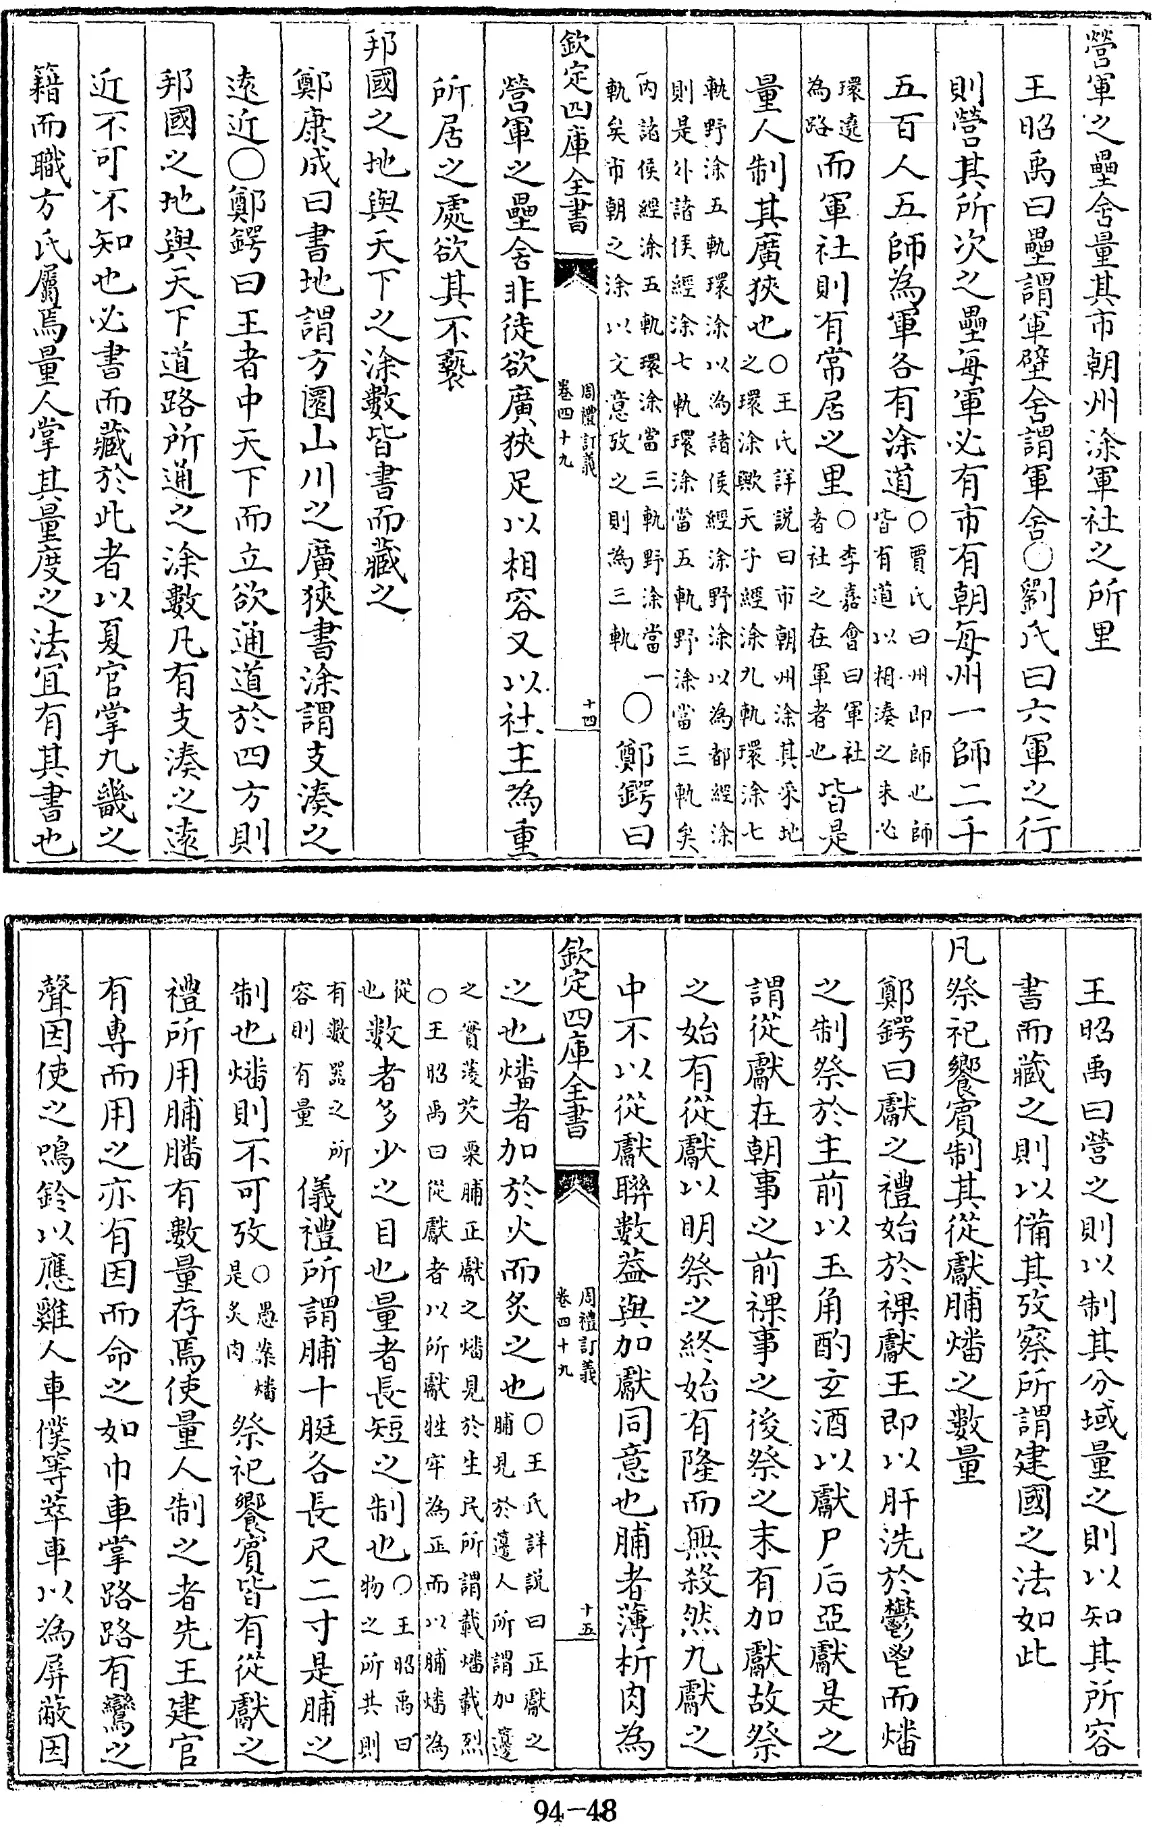 營軍之壘舍量其市朝州涂軍社之所里
王昭禹曰壘謂軍壁舍謂軍舍○劉氏曰六軍之行
則營其所次之壘每軍必有市有朝每州一師二千
五百人五師為軍各有涂道○賈氏曰州即師也師皆有道以相湊之來必
環遶為路而軍社則有常居之里○李嘉會曰軍社者社之在軍者也皆是
量人制其廣狹也○王氏詳説曰市朝州涂其采地之環涂歟天子經涂九軌環涂七
軌野涂五軌環涂以為諸侯經涂野涂以為都經涂則是外諸侯經涂七軌環涂當五軌野涂當三軌矣
内諸侯經涂五軌環涂當三軌野涂當一軌矣市朝之涂以文意攷之則為三軌○鄭鍔曰
欽定四庫全書 周禮訂義 卷四十九 十四
營軍之壘舍非徒欲廣狹足以相容又以社主為重
所居之處欲其不褻
邦國之地與天下之涂數皆書而藏之
鄭康成曰書地謂方圜山川之廣狹書涂謂支湊之
遠近○鄭鍔曰王者中天下而立欲通道於四方則
邦國之地與天下道路所通之涂數凡有支湊之遠
近不可不知也必書而藏於此者以夏官掌九畿之
籍而職方氏屬焉量人掌其量度之法宜有其書也
王昭禹曰營之則以制其分域量之則以知其所容
書而藏之則以備其攷察所謂建國之法如此
凡祭祀饗賓制其從獻脯燔之數量
鄭鍔曰獻之禮始於祼獻王即以肝洗於鬱鬯而燔
之制祭於主前以玉角酌玄酒以獻尸后亞獻是之
謂從獻在朝事之前祼事之後祭之末有加獻故祭
之始有從獻以明祭之終始有隆而無殺然九獻之
中不以從獻聯數葢與加獻同意也脯者薄析肉為
欽定四庫全書 周禮訂義 卷四十九 十五
之也燔者加於火而炙之也○王氏詳説曰正獻之脯見於籩人所謂加籩
之實蔆芡栗脯正獻之燔見於生民所謂載燔載烈○王昭禹曰從獻者以所獻牲牢為正而以脯燔為
從也數者多少之目也量者長短之制也○王昭禹曰物之所共則
有數器之所容則有量儀禮所謂脯十脡各長尺二寸是脯之
制也燔則不可攷○愚案燔是炙肉祭祀饗賓皆有從獻之
禮所用脯膰有數量存焉使量人制之者先王建官
有專而用之亦有因而命之如巾車掌路路有鸞之
聲因使之鳴鈴以應雞人車僕等萃車以為屏蔽因
94-48